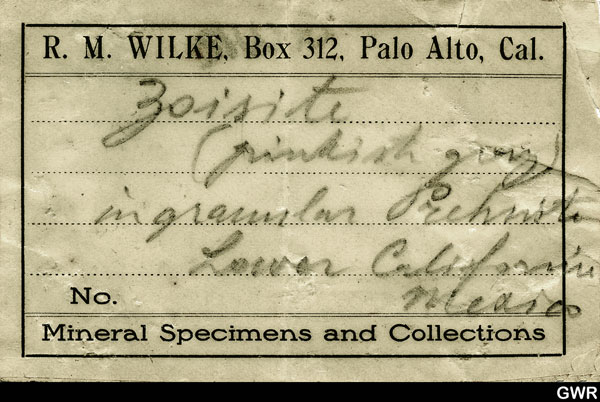 R. M. WILKE, Box 312, Palo Alto, Cal.
Zoisite
(pinkish gray)
in granular Prehnite
Lower California
Mexico
No.
Mineral Specimens and Collections
GWR